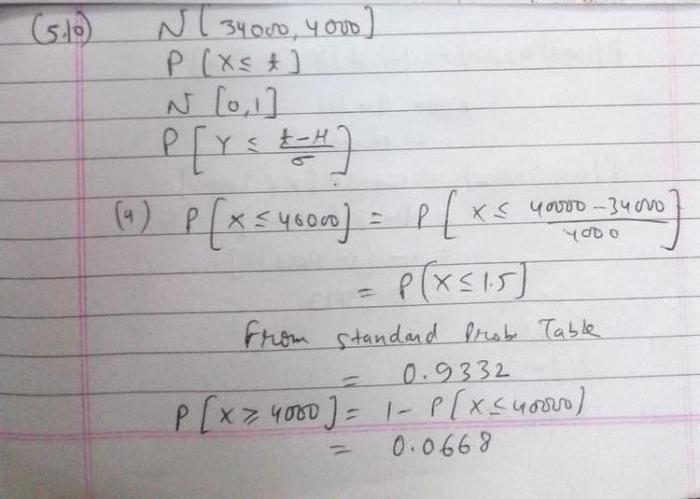 (5.10) N[34000, 4000]
P[X ≤ t]
N[0,1]
P[Y ≤ (t-μ)/σ]
(a) P[X ≤ 40000] = P[X ≤ (40000-34000)/4000]
= P[X ≤ 1.5]
From standard Prob Table
= 0.9332
P[X ≥ 4000] = 1 - P[X ≤ 40000)
= 0.0668